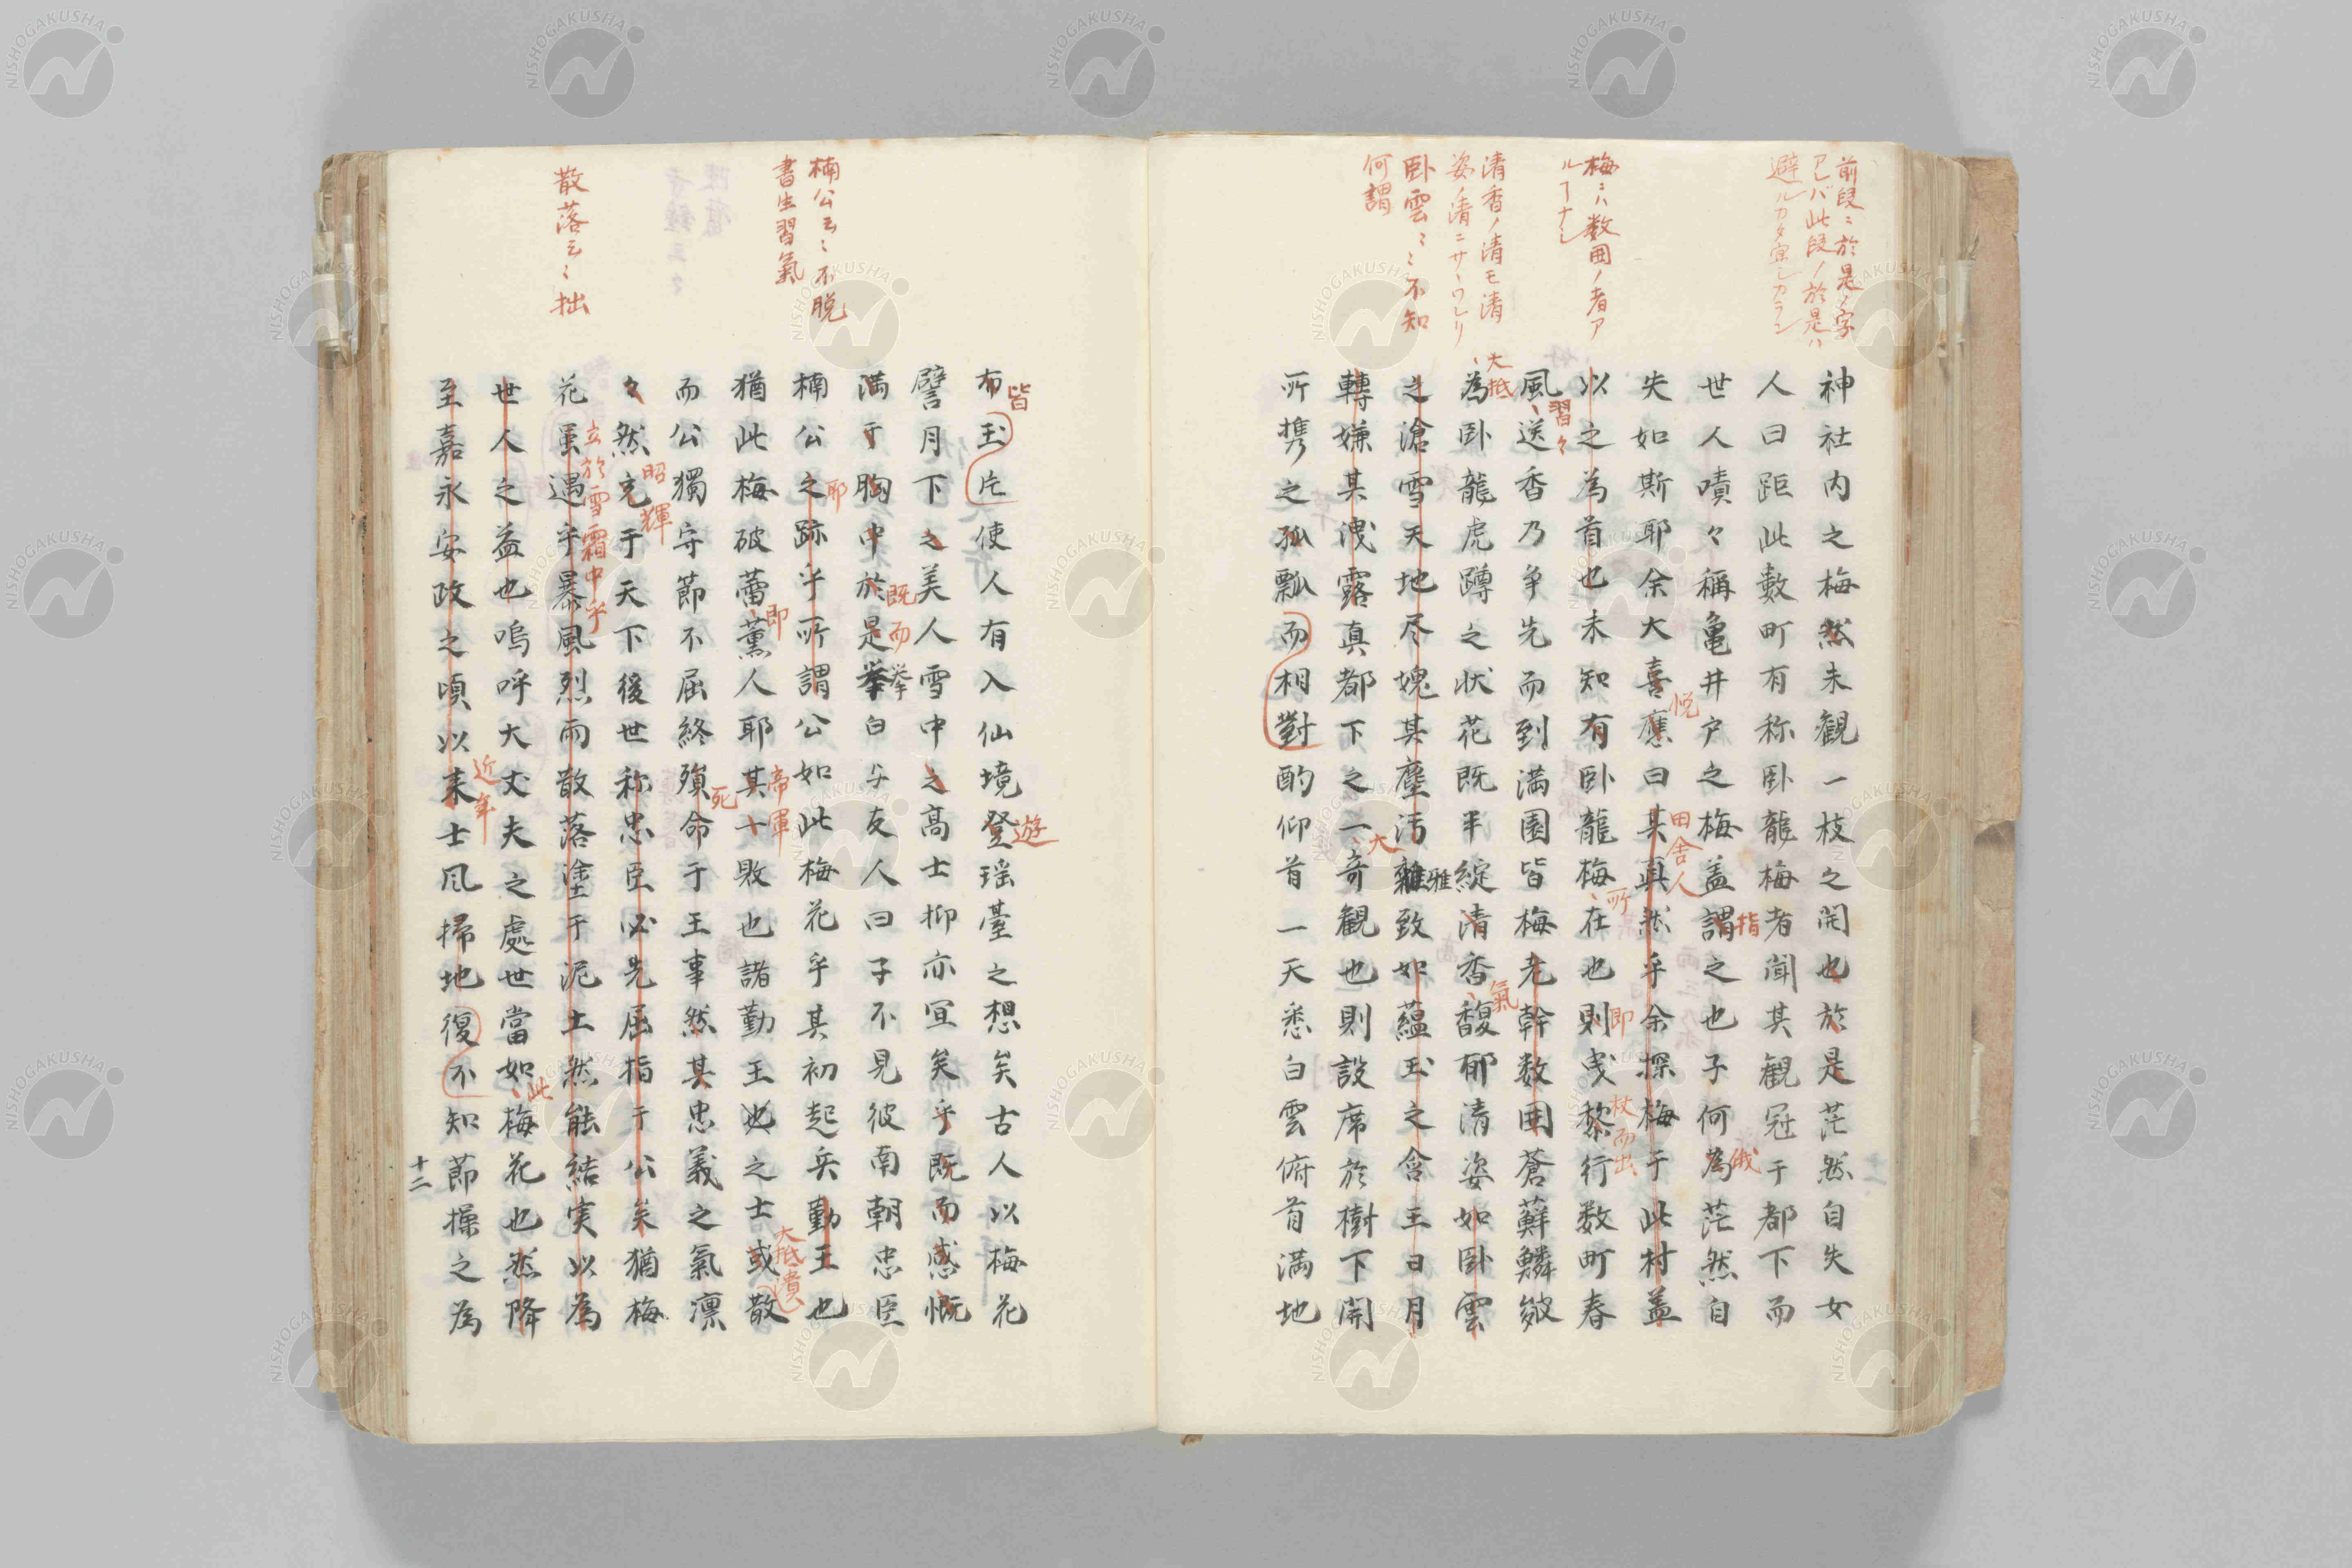 前段ニ於是ノ字
アレバ此段ノ於是ハ
避ルカタ宜シカラン
梅ニハ数囲ノ者ア
ルヿナシ
清香ノ清モ清
姿ノ清ニサハワレリ
卧雲云々不知
何謂
神社内之梅然未観一枝之開也於是茫然自失女
人曰距此數町有称卧龍梅者聞其観冠于都下而
世人嘖々稱亀井戸之梅盖謂之也子何為茫然自
指
俄
失如斯耶余大喜應曰其真然乎余探梅于此村盖
悦
田舎人
以之為首也未知有卧龍梅在也則曳黎行数町春
所
即
杖而出
風送香乃争先而到満園皆梅老幹数囲蒼蘚鱗皴
習々
為卧龍虎蹲之状花既半綻清香馥郁清姿如卧雲
大抵
氣
之滄雪天地尽媿其塵汚雜致如蘊玉之含王日月
雅
轉嫌其洩露真都下之一奇観也則設席於樹下開
大
所携之孤瓢而相對酌仰首一天悉白雲俯首満地
楠公云々不脱
書生習氣
散落云々拙
布玉屑使人有入仙境登瑶臺之想矣古人以梅花
皆
遊
譬月下之美人雪中之高士抑亦冝矣乎既而感慨
満于胸中於是挙白与友人曰子不見彼南朝忠臣
既而
挙
楠公之跡乎所謂公如此梅花乎其初起兵勤王也
耶
猶此梅破蕾薫人耶其一敗也諸勤王之士或散
即
帝軍
大抵潰
而公獨守節不屈終殞命于王事然其忠義之氣凛
死
々然充于天下後世称忠臣必先屈指于公矣猶梅
昭輝
花虽遇乎暴風烈雨散落塗于泥土然能結実以為
立於雪霜中乎
世人之益也嗚呼大丈夫之處世當如梅花也然降
此
至嘉永安政之頃以来士风掃地復不知節操之為
近年
十二